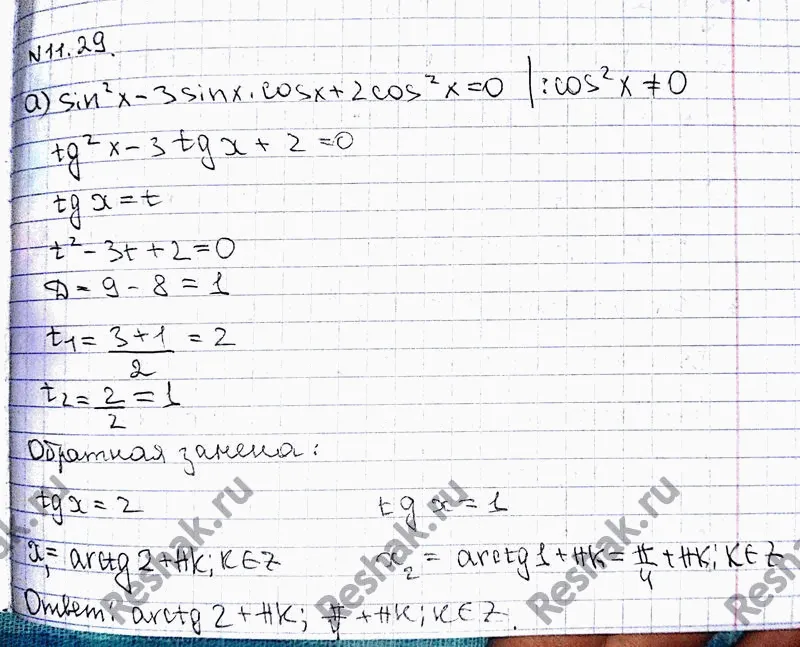 N11.29.
а) sin²x - 3sinx·cosx + 2cos²x = 0 | : cos²x ≠ 0
tg²x - 3tgx + 2 = 0
tg x = t
t² - 3t + 2 = 0
D = 9 - 8 = 1
t₁ = (3+1)/2 = 2
t₂ = 2/2 = 1
Обратная замена:
tg x = 2 tg x = 1
x₁ = arctg 2 + πK; K∈Z x₂ = arctg 1 + πK = π/4 + πK; K∈Z
Ответ: arctg 2 + πK; π/4 + πK; K∈Z.
Reshak.ru
Reshak.ru
Reshak.ru
Reshak.ru